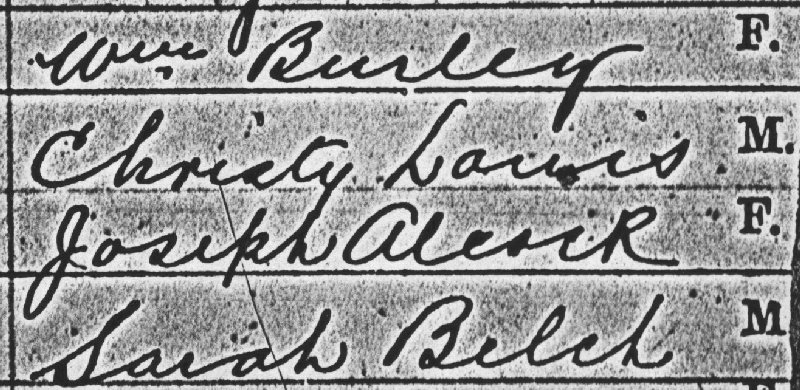 Wm Burley F.
Christy Louis M.
Joseph Alcock F.
Sarah Belch M